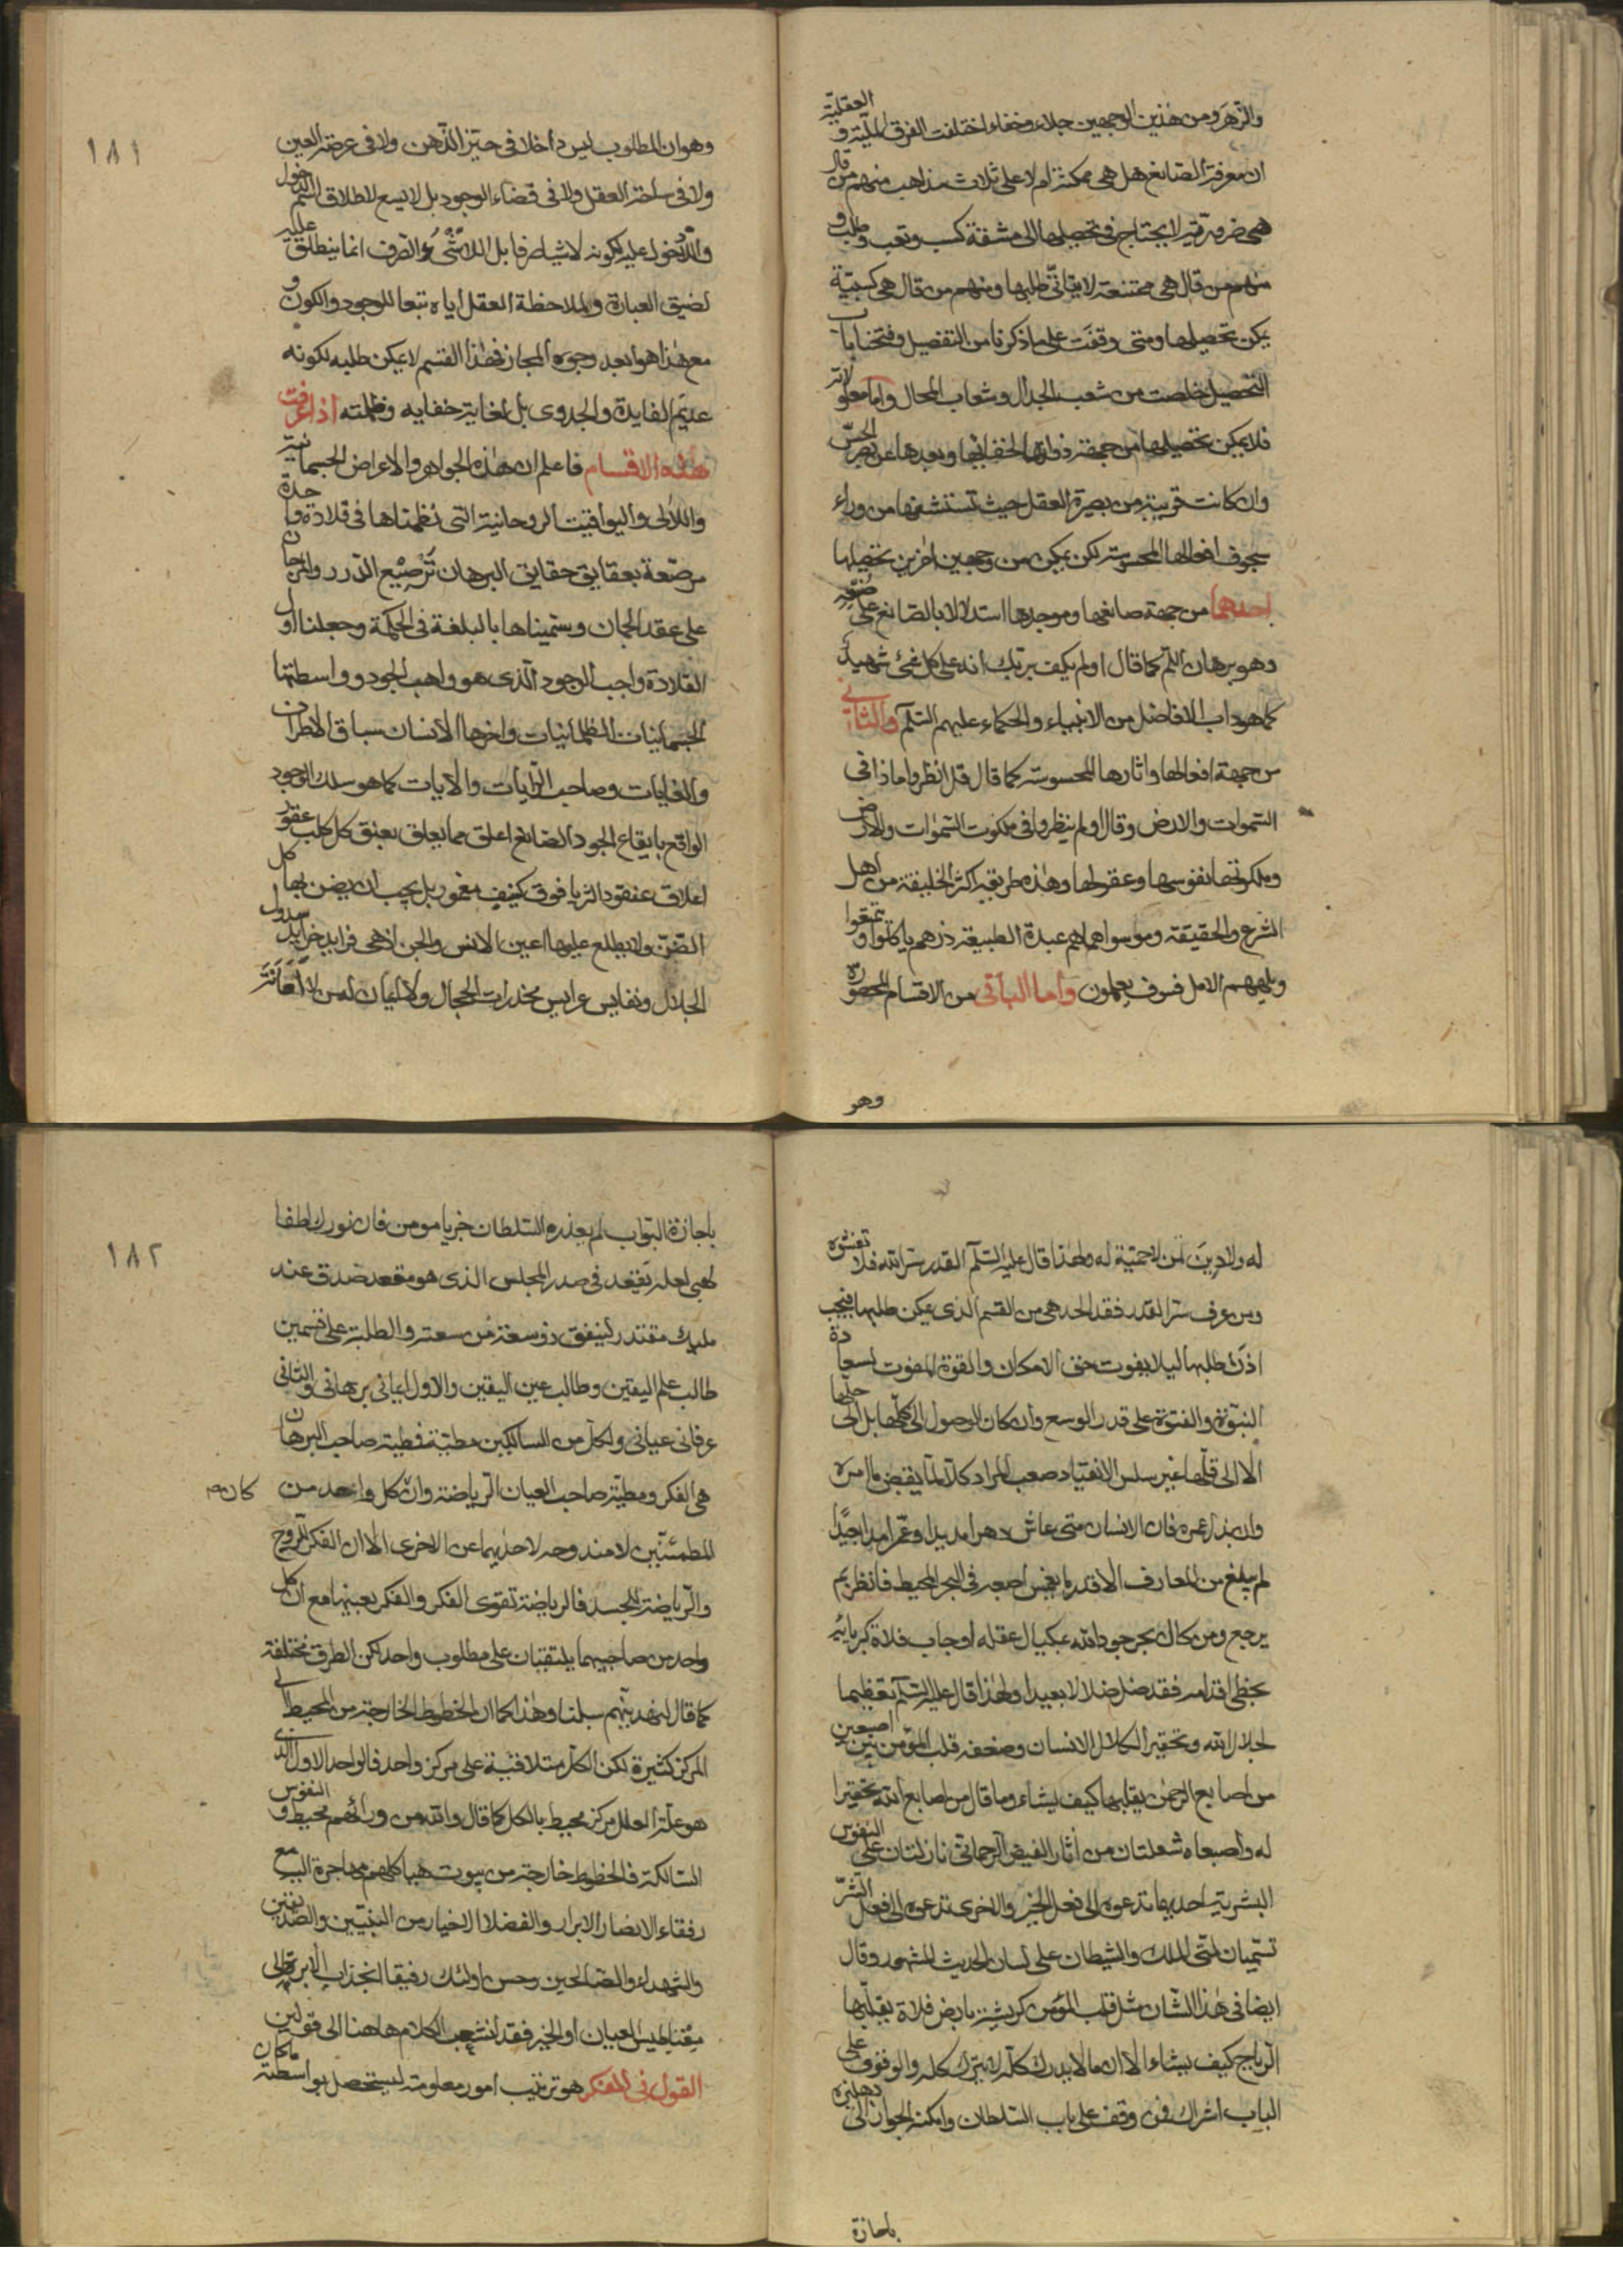 والزهر ومن هذين الوجهين جلاء وخفاء اختلفت الفرق الملية والعقلية
ان معرفة الصانع هل هي ممكنة ام لا على ثلاث مذاهب منهم من قال
هي ضرورية لا يحتاج في تحصيلها الى مشقة كسب وتعب وطلب و
منهم من قال هي ممتنعة لا يتأتى طلبها ومنهم من قال هي كسبية
يمكن تحصيلها ومتى وقفت على ما ذكرنا من التفصيل وفتحنا باب
التحصيل خلصت من شعب الجدال وشعاب المحال واما معلولاته
فلا يمكن تحصيلها من جهة ذواتها لخفائها وبعدها عن بصر الحس
وان كانت قريبة من بصيرة العقل حيث تستشفها من وراء
سجوف افعالها المحسوسة لكن يمكن من وجهين اخرين تحصيلها
احدهما من جهة صانعها وموجدها استدلالا بالصانع على صنعه
وهو برهان اللم كما قال اولم يكف بربك انه على كل شئ شهيد
كما هو داب الافاضل من الانبياء والحكماء عليهم السلم والثاني
من جهة افعالها واثارها المحسوسة كما قال قل انظروا ماذا في
السموات والارض وقال اولم ينظروا في ملكوت السموات والارض
وملكوتها نفوسها وعقولها وهذه طريقة اكثر الخليقة من اهل
الشرع والحقيقة ومن سواهما هم عبدة الطبيعة ذرهم ياكلوا ويتمتعوا
ويلههم الامل فسوف يعلمون واما الباقي من الاقسام المحصورة
وهو
١٨١
وهو ان المطلوب ليس داخلا في حيز الذهن ولا في عرضة العين
ولا في ساحة العقل ولا في قضاء الوجود بل لا يسع لاطلاق اسم الدخول
واللادخول عليه لكونه لا شيئا صرفا بل اللاشئ الصرف انما ينطلق عليه
لضيق العبارة ولملاحظة العقل اياه تبعا للوجود والكون و
مع هذا هو ابعد وجوه المجاز فهذا القسم لا يمكن طلبه لكونه
عديم الفايدة والجدوى بل لغاية خفايه وظلمته اذا عرفت
هذه الاقسام فاعلم ان هذه الجواهر والاعراض الجسمانية
واللآلى واليواقيت الروحانية التي نظمناها في قلادة واحدة
مرصعة بعقايق حقايق البرهان ترصيع الدرر والمرجان
على عقد الجمان وسميناها بالبلغة في الحكمة وجعلنا اول
القلادة واجب الوجود الذي هو واهب الجود وواسطتها
الجسمانيات الظلمانيات واخرها الانسان سباق الاطراف
والغايات وصاحب الرايات والايات كما هو سلك الوجود
الواقع بايقاع الجود الصانع اعلق مما يعلق بعنق كل كلب عقور
اعلاق عنقود الثريا فوق كنيف مغمور بل يجب ان يضن بها كل
الضن ولا يطلع عليها اعين الانس والجن اذ هي فرايد خرايد سدول
الجلال ونفايس عرايس مخدرات الحجال ولا ايمان لمن لا امانة
له ولا دين لمن لا حمية له ولهذا قال عليه السلم القدر سر الله فلا تفشوه
ومن عرف سر القدر فقد الحد هي من القسم الذي يمكن طلبها فيجب
اذن طلبها ليلا يفوت حق الامكان والقوة المفوت لسعادة
النبوة والفتوة على قدر الوسع وان كان الوصول الى كلها بل الى جلها
الا الى قلها غير سلس الانقياد صعب المراد كلا لما يقض ما امره
وان بذل عمره فان الانسان متى عاش دهرا مديدا وعمر امدا بعيدا
لم يبلغ من المعارف الا قدر ما يغمس اصبعه في البحر المحيط فانظر بم
يرجع ومن كال بحر جود الله بمكيال عقله او جاب فلاة كبريائه
بخطى اقدامه فقد ضل ضلالا بعيدا ولهذا قال عليه السلم تعظيما
لجلال الله وتحقيرا لكلال الانسان وضعفه قلب المؤمن بين اصبعين
من اصابع الرحمن يقلبها كيف يشاء وما قال من اصابع الله تحقيرا
له واصبعاه شعلتان من أثار الفيض الرحماني نازلتان على النفوس
البشرية احديهما تدعوه الى فعل الخير والاخرى تدعوه الى فعل الشر
تسميان لمتى الملك والشيطان على لسان الحديث المشهور وقال
ايضا في هذا الشان مثل قلب المؤمن كريشة بارض فلاة يقلبها
الرياح كيف يشاء الا ان ما لا يدرك كله لا يترك كله والوقوف على
الباب اشراك فمن وقف على باب السلطان وامكنه الجواز الى دهليزه
باجازة
١٨٢
باجازة البواب لم يعذره السلطان جز يا مومن فان نورك اطفا
لهبى لعله يقعد في صدر المجلس الذي هو مقعد صدق عند
مليك مقتدر لينفق ذو سعة من سعته والطلبة على قسمين
طالب علم اليقين وطالب عين اليقين والاول ايماني برهاني والثاني
عرفاني عياني ولكل من السالكين مطية فمطية صاحب البرهان
هي الفكر ومطية صاحب العيان الرياضة وان كل واحد من
كان ص
المطمئنين لا مندوحه لاحديهما عن الاخرى الا ان الفكر للروح
والرياضة للجسد فالرياضة تقوى الفكر والفكر يعينها مع ان كل
واحد من صاحبيهما يلتقيان على مطلوب واحد لكن الطرق مختلفة
كما قال لنهدينهم سبلنا وهذا كما ان الخطوط الخارجة من المحيط الى
المركز كثيرة لكن الكل متلاقية على مركز واحد فالواحد الاول الذي
هو علة العلل مركز محيط بالكل كما قال والله من ورائهم محيط والنفوس
السالكة فالخطوط خارجة من بيوت هياكلهم مهاجرة اليه مع
رفقاء الانصار الابرار والفضلا الاخيار من النبيين والصديقين
والشهداء والصالحين وحسن اولئك رفيقا انجذاب الابرة الى
مغناطيس العيان او الخبر فقد انشعب الكلام هاهنا الى قولين
القول في الفكر هو ترتيب امور معلومة ليستحصل بواسطته ما كان